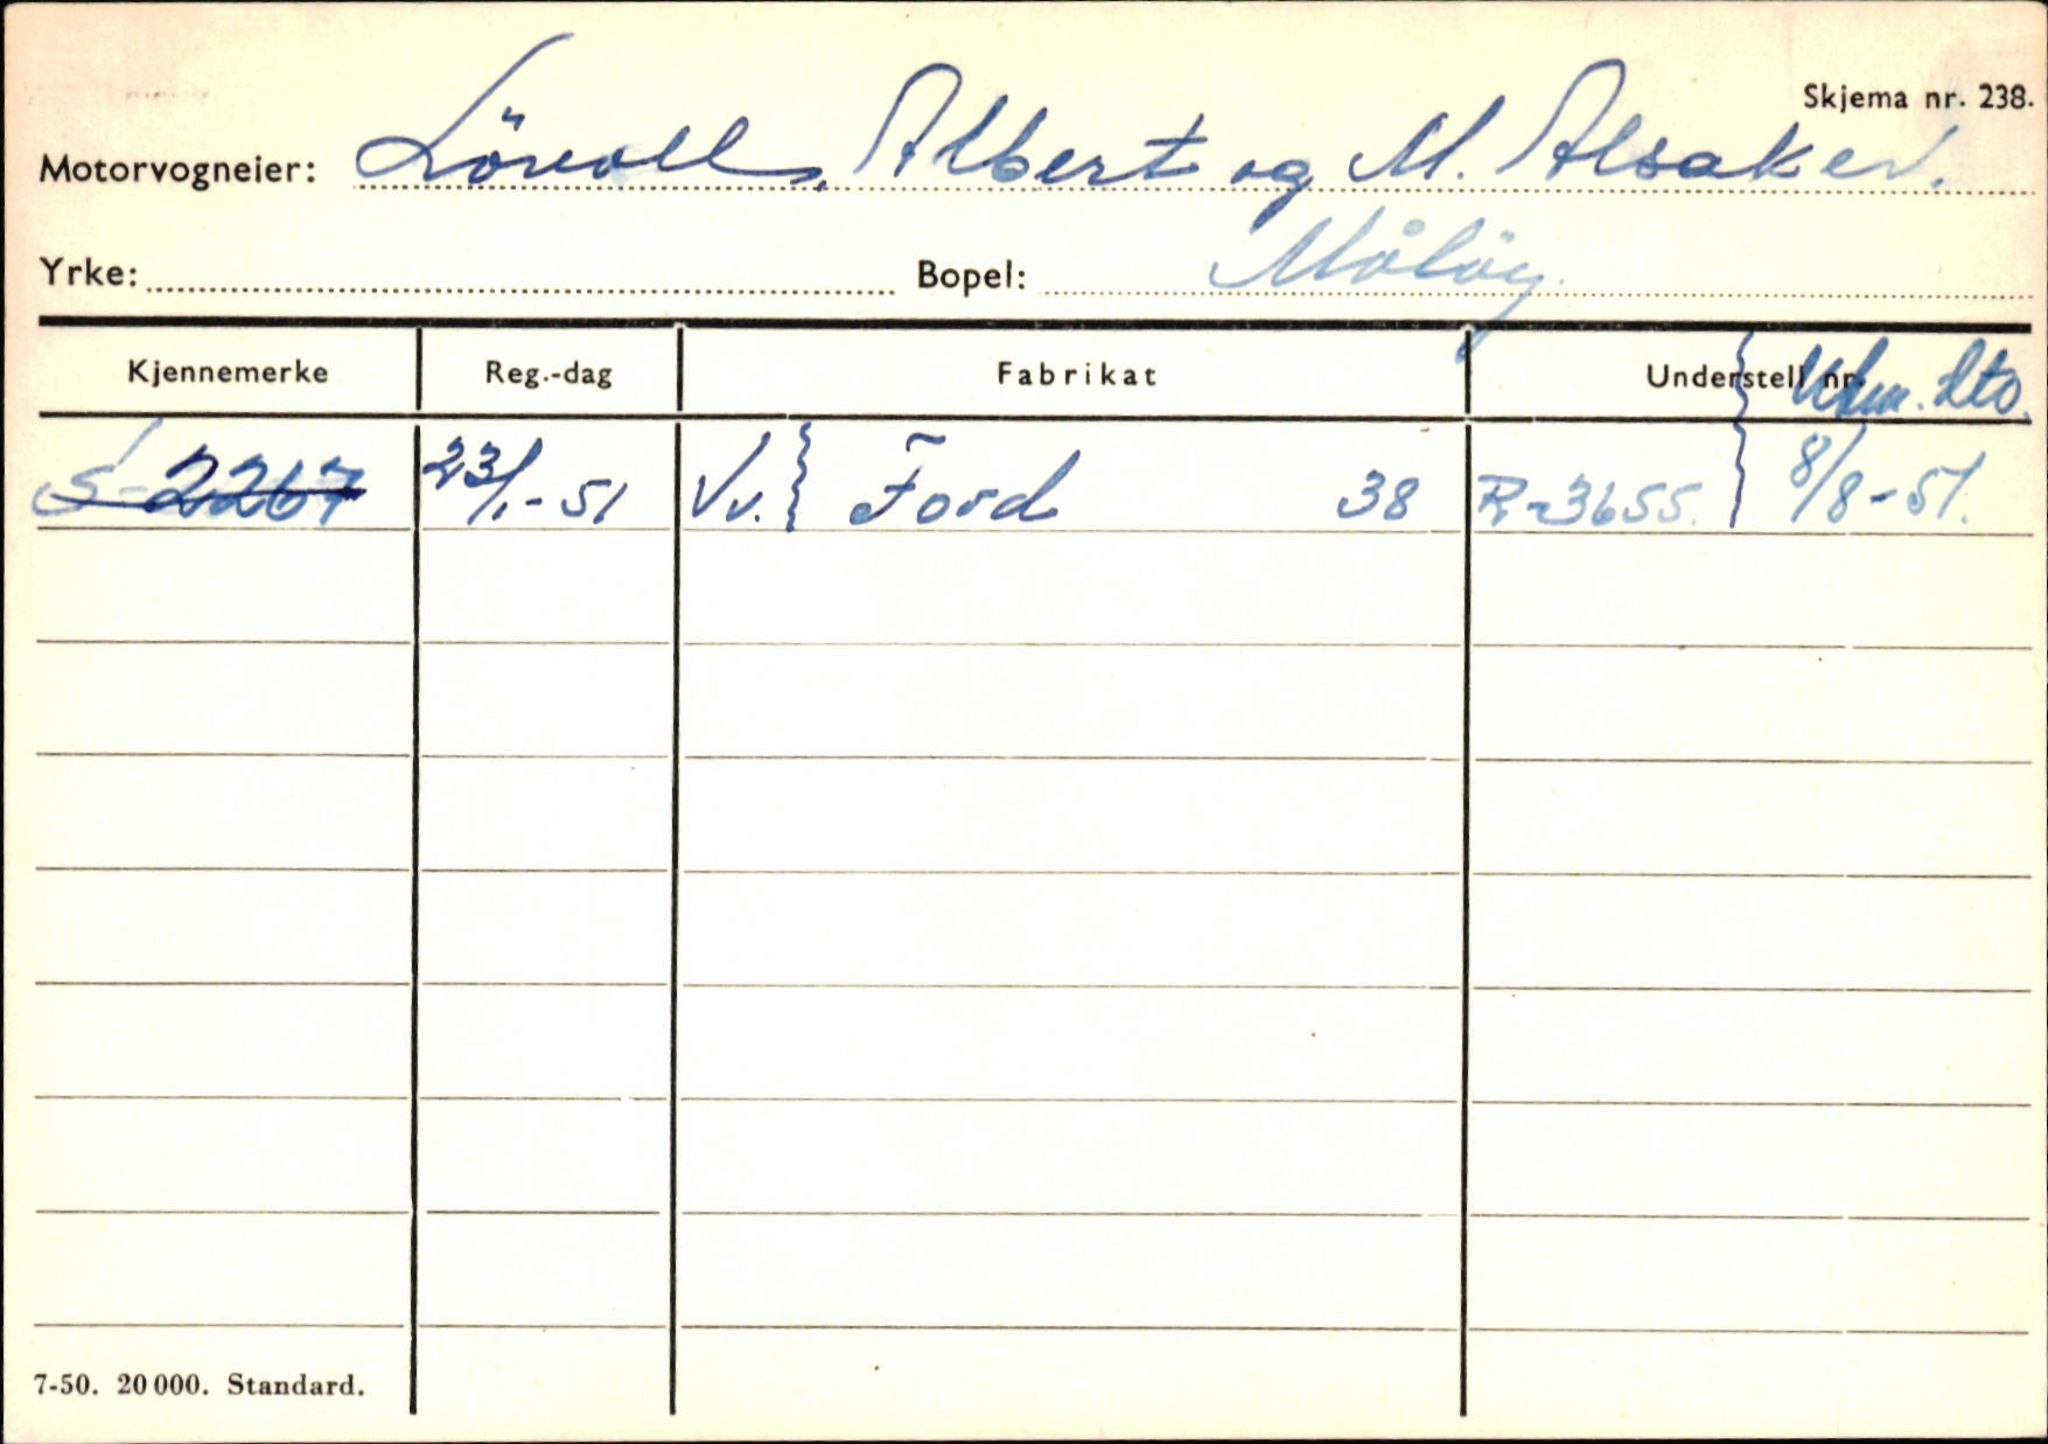 Skjema nr. 238.
Motorvogneier: Lövoll, Albert og M. Alsaker.
Yrke: Bopel: Målöy.
Kjennemerke Reg.-dag Fabrikat Understell nr.
S-2267 23/1-51 Vv. } Ford 38 R-3655. } 8/8-51.
7-50. 20 000. Standard.